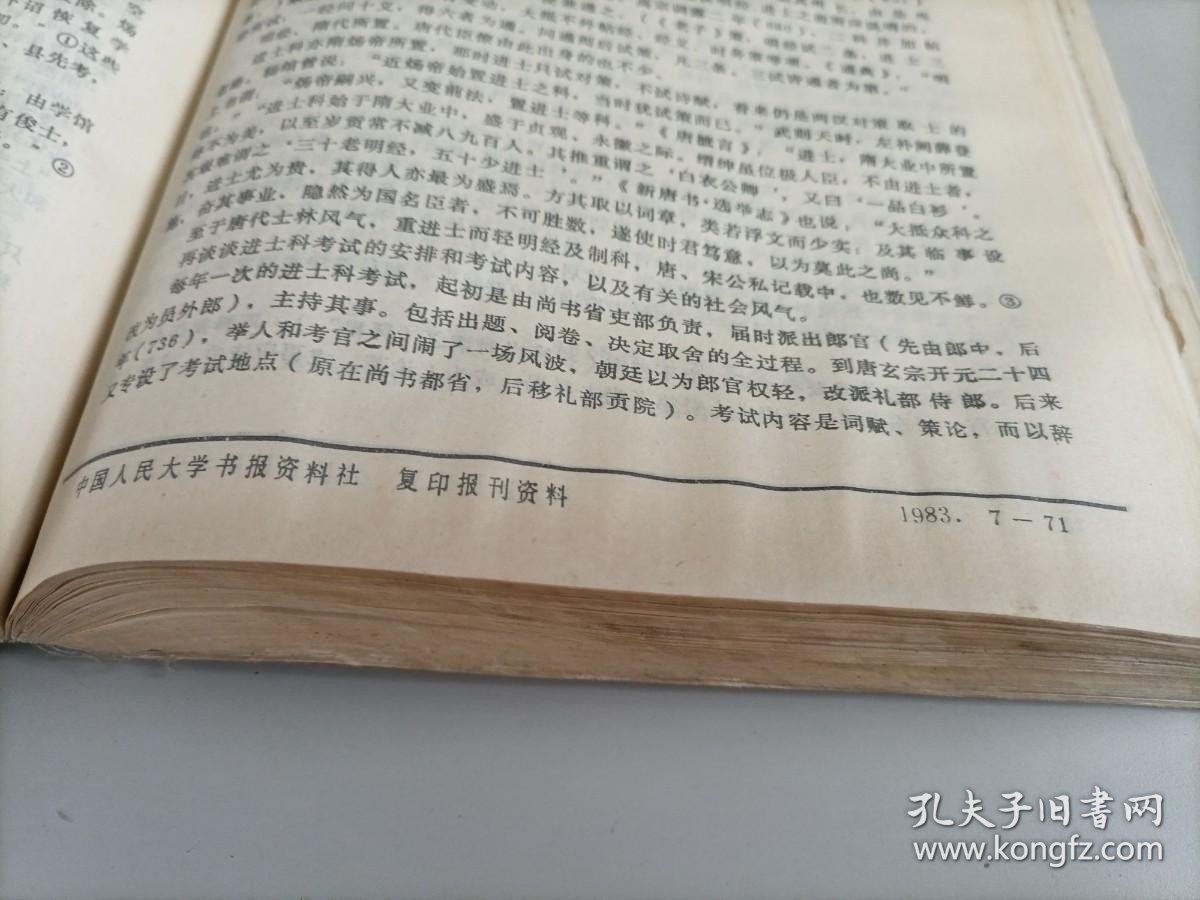 空
除。炀
诏恢复学
①这些
、县先考，
由学馆
有俊土，
。”②
进士科亦隋炀帝所置，那时进士只试对策，不试诗赋，看来仍是两汉对策取士的
“近炀帝始置进士之科，当时犹试策而已。”武则天时，左补阙薛登
“炀帝嗣兴，又变前法，置进士等科。”《唐摭言》：“进士，隋大业中所置
“进士科始于隋大业中，盛于贞观、永徽之际。缙绅虽位极人臣，不由进士者，
终不为美，以至岁贡常不减八九百人。其推重谓之‘白衣公卿’，又曰‘一品白衫’。
其艰难谓之‘三十老明经，五十少进士’。”《新唐书·选举志》也说：“大抵众科之
目，进士尤为贵，其得人亦最为盛焉。方其取以词章，类若浮文而少实；及其临事设
施，奋其事业，隐然为国名臣者，不可胜数，遂使时君笃意，以为莫此之尚。”
至于唐代士林风气，重进士而轻明经及制科，唐、宋公私记载中，也数见不鲜。③
再谈谈进士科考试的安排和考试内容，以及有关的社会风气。
每年一次的进士科考试，起初是由尚书省吏部负责，届时派出郎官（先由郎中，后
改为员外郎），主持其事。包括出题、阅卷、决定取舍的全过程。到唐玄宗开元二十四
年（736），举人和考官之间闹了一场风波，朝廷以为郎官权轻，改派礼部侍郎。后来
又专设了考试地点（原在尚书都省，后移礼部贡院）。考试内容是词赋、策论，而以辞
中国人民大学书报资料社 复印报刊资料
1983. 7－71
孔夫子旧书网
www.kongfz.com